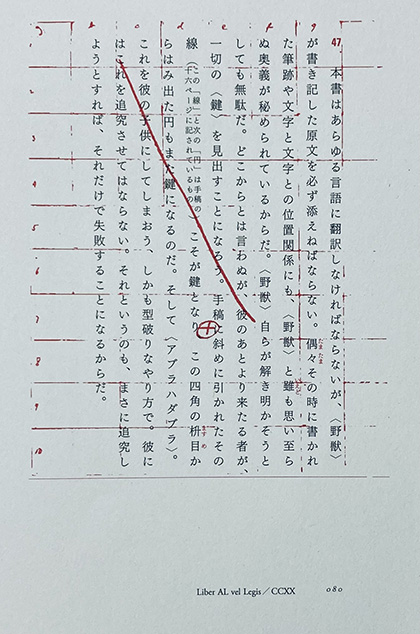 47 本書はあらゆる言語に翻訳しなければならないが、〈野獣〉
が書き記した原文を必ず添えねばならない。偶々その時に書かれ
たまたま
た筆跡や文字と文字との位置関係にも、〈野獣〉と雖も思い至ら
いえど
ぬ奥義が秘められているからだ。〈野獣〉自らが解き明かそうと
しても無駄だ。どこからとは言わぬが、彼のあとより来たる者が、
一切の〈鍵〉を見出すことになろう。手稿に斜めに引かれたその
線(この「線」と次の「円」は手稿の十六ページに記されているもの)こそが鍵となり、この四角の枡目か
ますめ
らはみ出た円もまた鍵になるのだ。そして〈アブラハダブラ〉。
これを彼の子供にしてしまおう、しかも型破りなやり方で。彼に
はこれを追究させてはならない。それというのも、まさに追究し
ようとすれば、それだけで失敗することになるからだ。
Liber AL vel Legis／CCXX 080